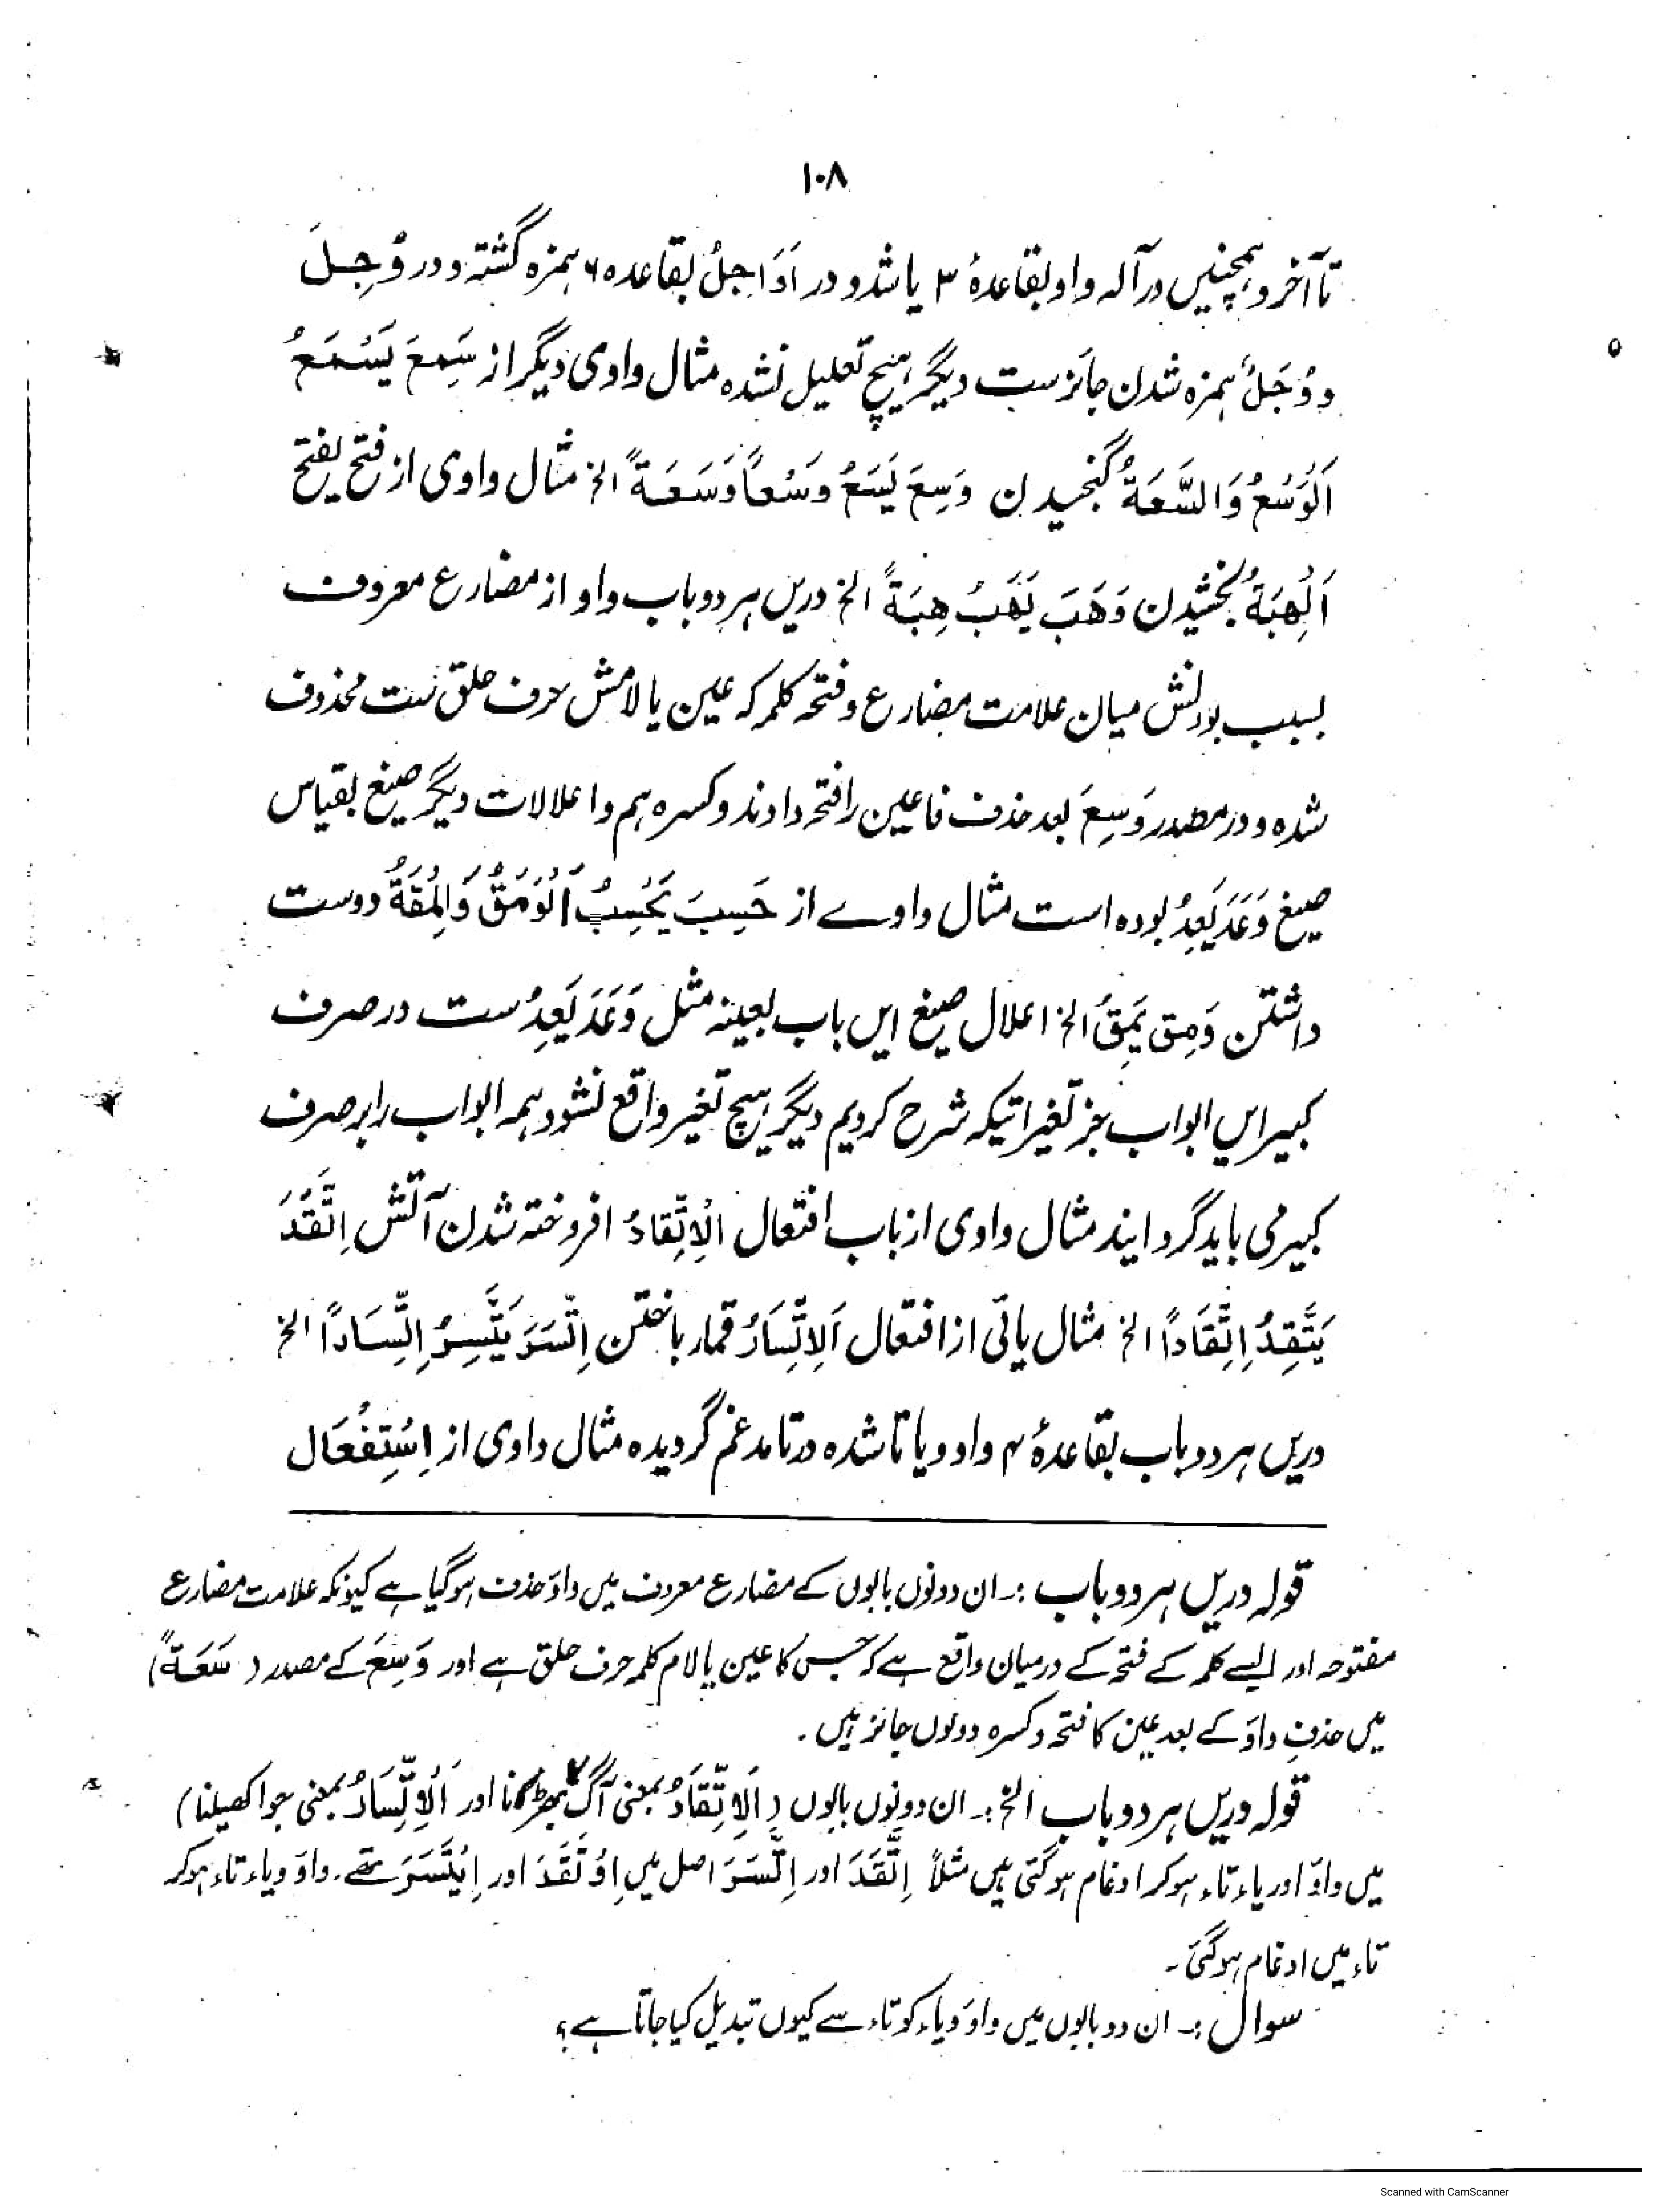 ١٠٨
تا آخر و ہمچنیں در آلہ واو بقاعدۂ ٣ یا شد و در اَوَاجِلُ بقاعدہ ٦ ہمزہ گشتہ و در وُجِلَ
و وُجَلٌ ہمزہ شدن جائز ست دیگر ہیچ تعلیل نشدہ مثال واوی دیگر از سَمِعَ یَسْمَعُ
اَلْوَسْعُ وَالسَّعَةُ گنجیدن وَسِعَ یَسَعُ وَسْعاً وَسَعَةً الخ مثال واوی از فتح یفتح
اَلْهِبَةُ بخشیدن وَهَبَ یَهَبُ هِبَةً الخ دریں ہر دو باب واو از مضارع معروف
بسبب بودنش میان علامت مضارع و فتحہ کلمہ کہ عین یا لامش حرف حلق ست محذوف
شدہ و در مصدر وَسِعَ بعد حذف فا عین را فتحہ دادند و کسرہ ہم و اعلالات دیگر صیغ بقیاس
صیغ وَعَدَ یَعِدُ بودہ است مثال واوے از حَسِبَ یَحْسِبُ اَلْوَمَقُ وَالْمِقَةُ دوست
داشتن وَمِقَ یَمِقُ الخ اعلال صیغ ایں باب بعینہ مثل وَعَدَ یَعِدُ ست در صرف
کبیر ایں ابواب بجز تغیراتیکہ شرح کردیم دیگر ہیچ تغیر واقع نشود ہمہ ابواب را بر صرف
کبیر می باید گردانید مثال واوی از باب افتعال اَلْاِتِّقَادُ افروختہ شدن آتش اِتَّقَدَ
یَتَّقِدُ اِتِّقَاداً الخ مثال یائی از افتعال اَلْاِتِّسَارُ قمار باختن اِتَّسَرَ یَتَّسِرُ اِتِّسَاراً الخ
دریں ہر دو باب بقاعدۂ ٤ واو و یا تا شدہ در تا مدغم گردیدہ مثال واوی از اِسْتِفْعَال
قولہ دریں ہر دو باب :۔ ان دونوں بابوں کے مضارع معروف میں واؤ حذف ہوگیا ہے کیونکہ علامت مضارع
مفتوحہ اور ایسے کلمہ کے فتحہ کے درمیان واقع ہے کہ جس کا عین یا لام کلمہ حرف حلق ہے اور وَسِعَ کے مصدر (سَعَةً)
میں حذفِ واؤ کے بعد عین کا فتحہ و کسرہ دونوں جائز ہیں ۔
قولہ دریں ہر دو باب الخ :۔ ان دونوں بابوں (اَلْاِتِّقَادُ بمعنی آگ بھڑکنا اور اَلْاِتِّسَارُ بمعنی جوا کھیلنا)
میں واؤ اور یاء تاء ہو کر ادغام ہوگئی ہیں مثلاً اِتَّقَدَ اور اِتَّسَرَ اصل میں اِوْتَقَدَ اور اِیْتَسَرَ تھے۔ واؤ و یاء تاء ہوکر
تاء میں ادغام ہوگئی ۔
سوال :۔ ان دو بابوں میں واؤ و یاء کو تاء سے کیوں تبدیل کیا جاتا ہے ؟
Scanned with CamScanner